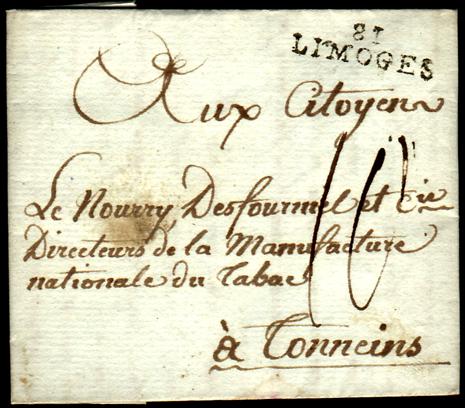 81
LIMOGES
Aux Citoyens
Le Nourry, Desfourniel et Cie
Directeurs de la Manufacture
nationale du Tabac
à Tonneins